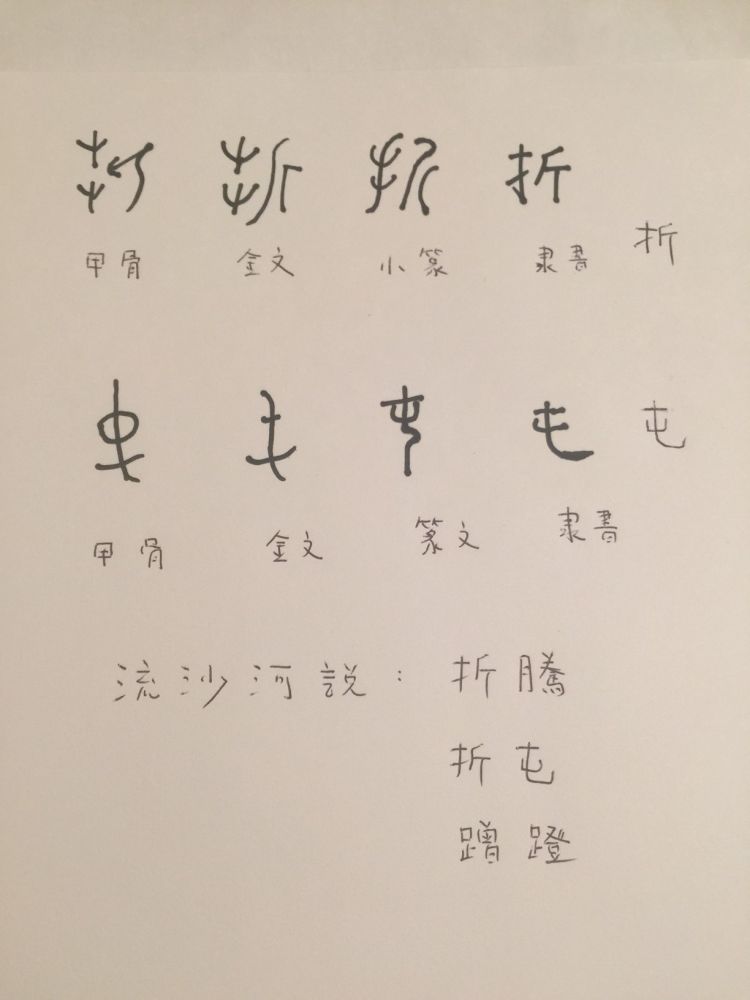 折 折 折 折 折
甲骨 金文 小篆 隶書
屯 屯 屯 屯 屯
甲骨 金文 篆文 隶書
流沙河説：折騰
折屯
蹭蹬